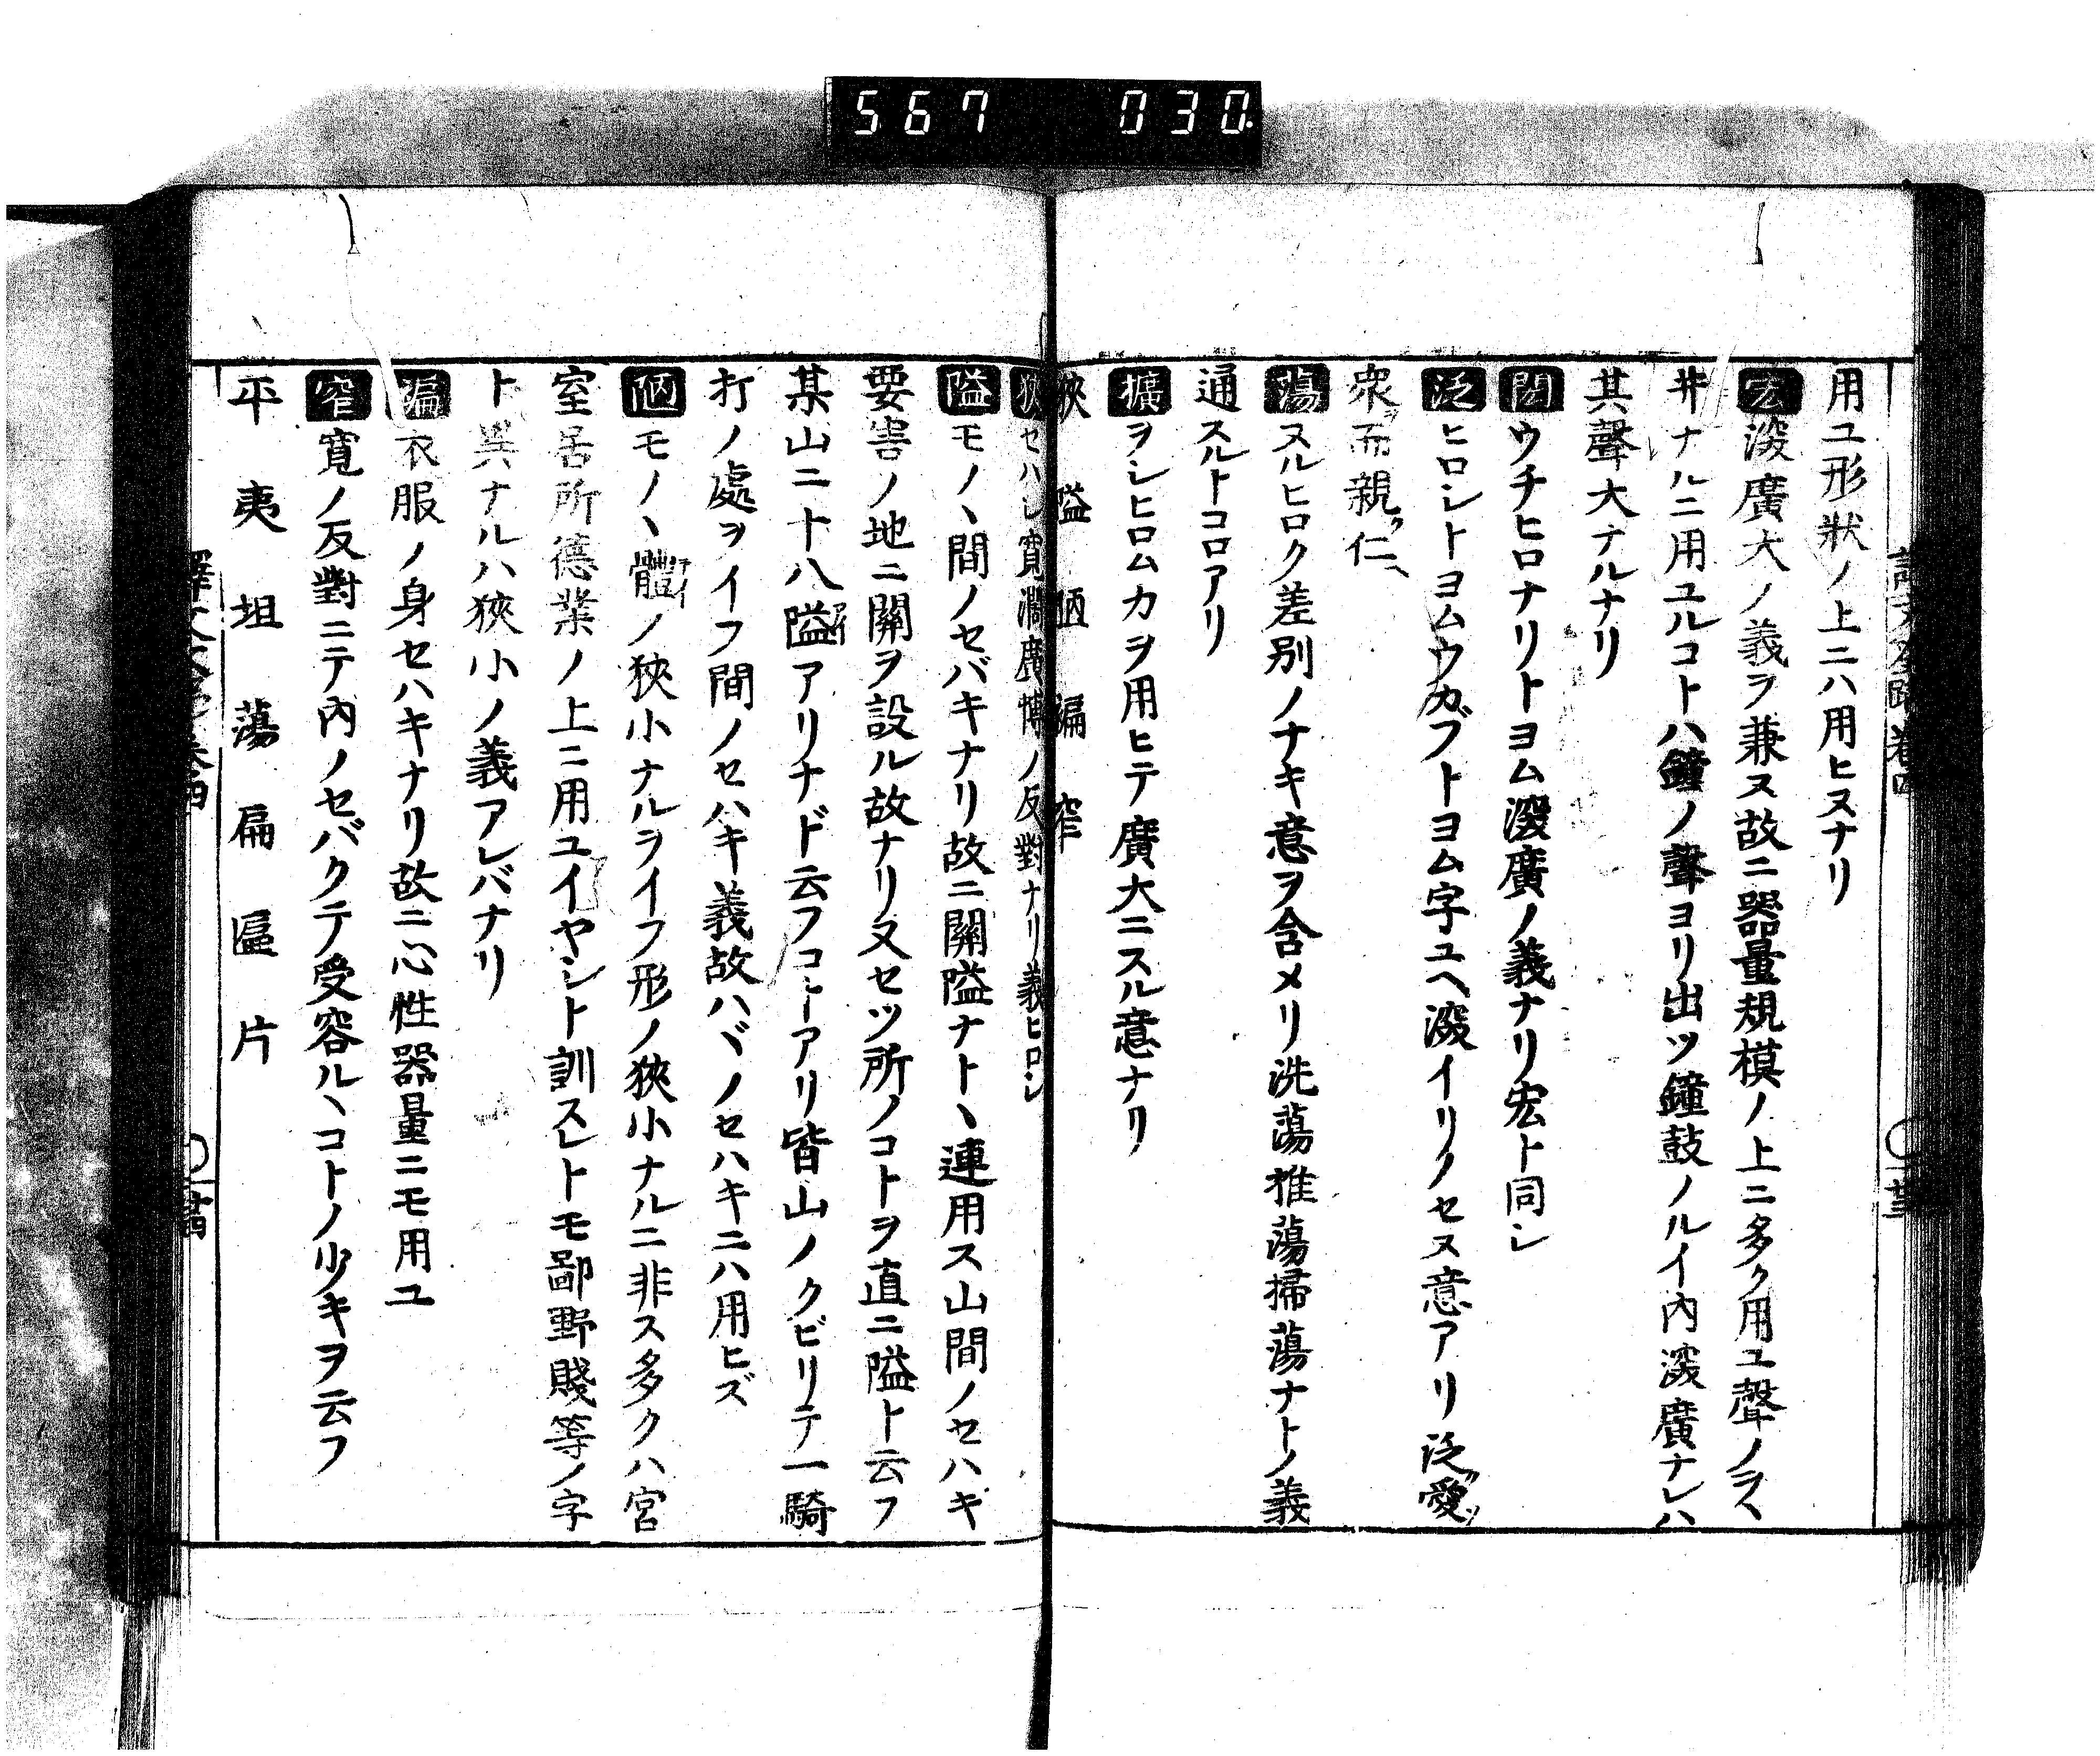 567 030.
用ユ形狀ノ上ニハ用ヒヌナリ
宏 深廣大ノ義ヲ兼ヌ故ニ器量規模ノ上ニ多ク用ユ聲ノヲヽ
キナルニ用ユルコトハ鐘ノ聲ヨリ出ツ鐘鼓ノルイ內深廣ナレハ
其聲大ナルナリ
閎 ウチヒロナリトヨム深廣ノ義ナリ宏ト同シ
泛 ヒロシトヨムウカブトヨム字ユヘ深イリノセヌ意アリ泛愛
衆ヲ而親仁
蕩 スルヒロク差別ノナキ意ヲ含メリ洗蕩推蕩掃蕩ナトノ義
通スルトコロアリ
擴 ヲシヒロムカヲ用ヒテ廣大ニスル意ナリ
狹 隘 陋 褊 窄
狹 セハシ寬濶廣博ノ反對ナリ義ヒロシ
隘 モノヽ間ノセバキナリ故ニ關隘ナトヽ連用ス山間ノセハキ
要害ノ地ニ關ヲ設ル故ナリ又セツ所ノコトヲ直ニ隘ト云フ
某山ニ十八隘アリナド云フコトアリ皆山ノクビリテ一騎
打ノ處ヲイフ間ノセハキ義故ハヾノセハキニハ用ヒズ
陋 モノヽ體ノ狹小ナルヲイフ形ノ狹小ナルニ非ス多クハ宮
室居所德業ノ上ニ用ユイヤシト訓スレトモ鄙野賤等ノ字
ト異ナルハ狹小ノ義アレバナリ
褊 衣服ノ身セハキナリ故ニ心性器量ニモ用ユ
窄 寬ノ反對ニテ內ノセバクテ受容ルヽコトノ少キヲ云フ
平 夷 坦 蕩 扁 匾 片